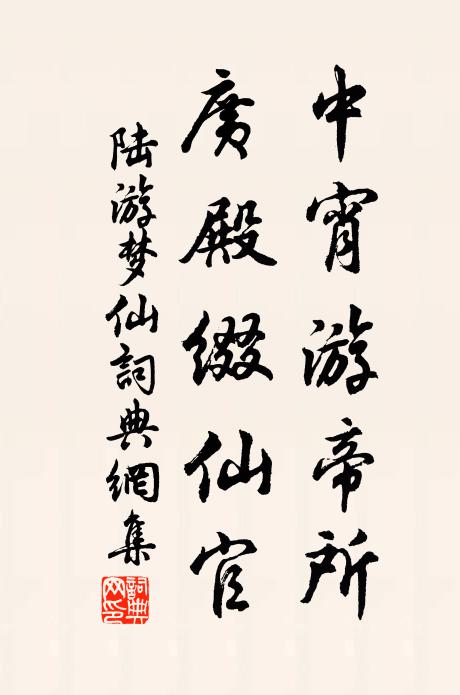 中宵游帝所
廣殿缀仙官
陆游梦仙詞典網集
詞典网印